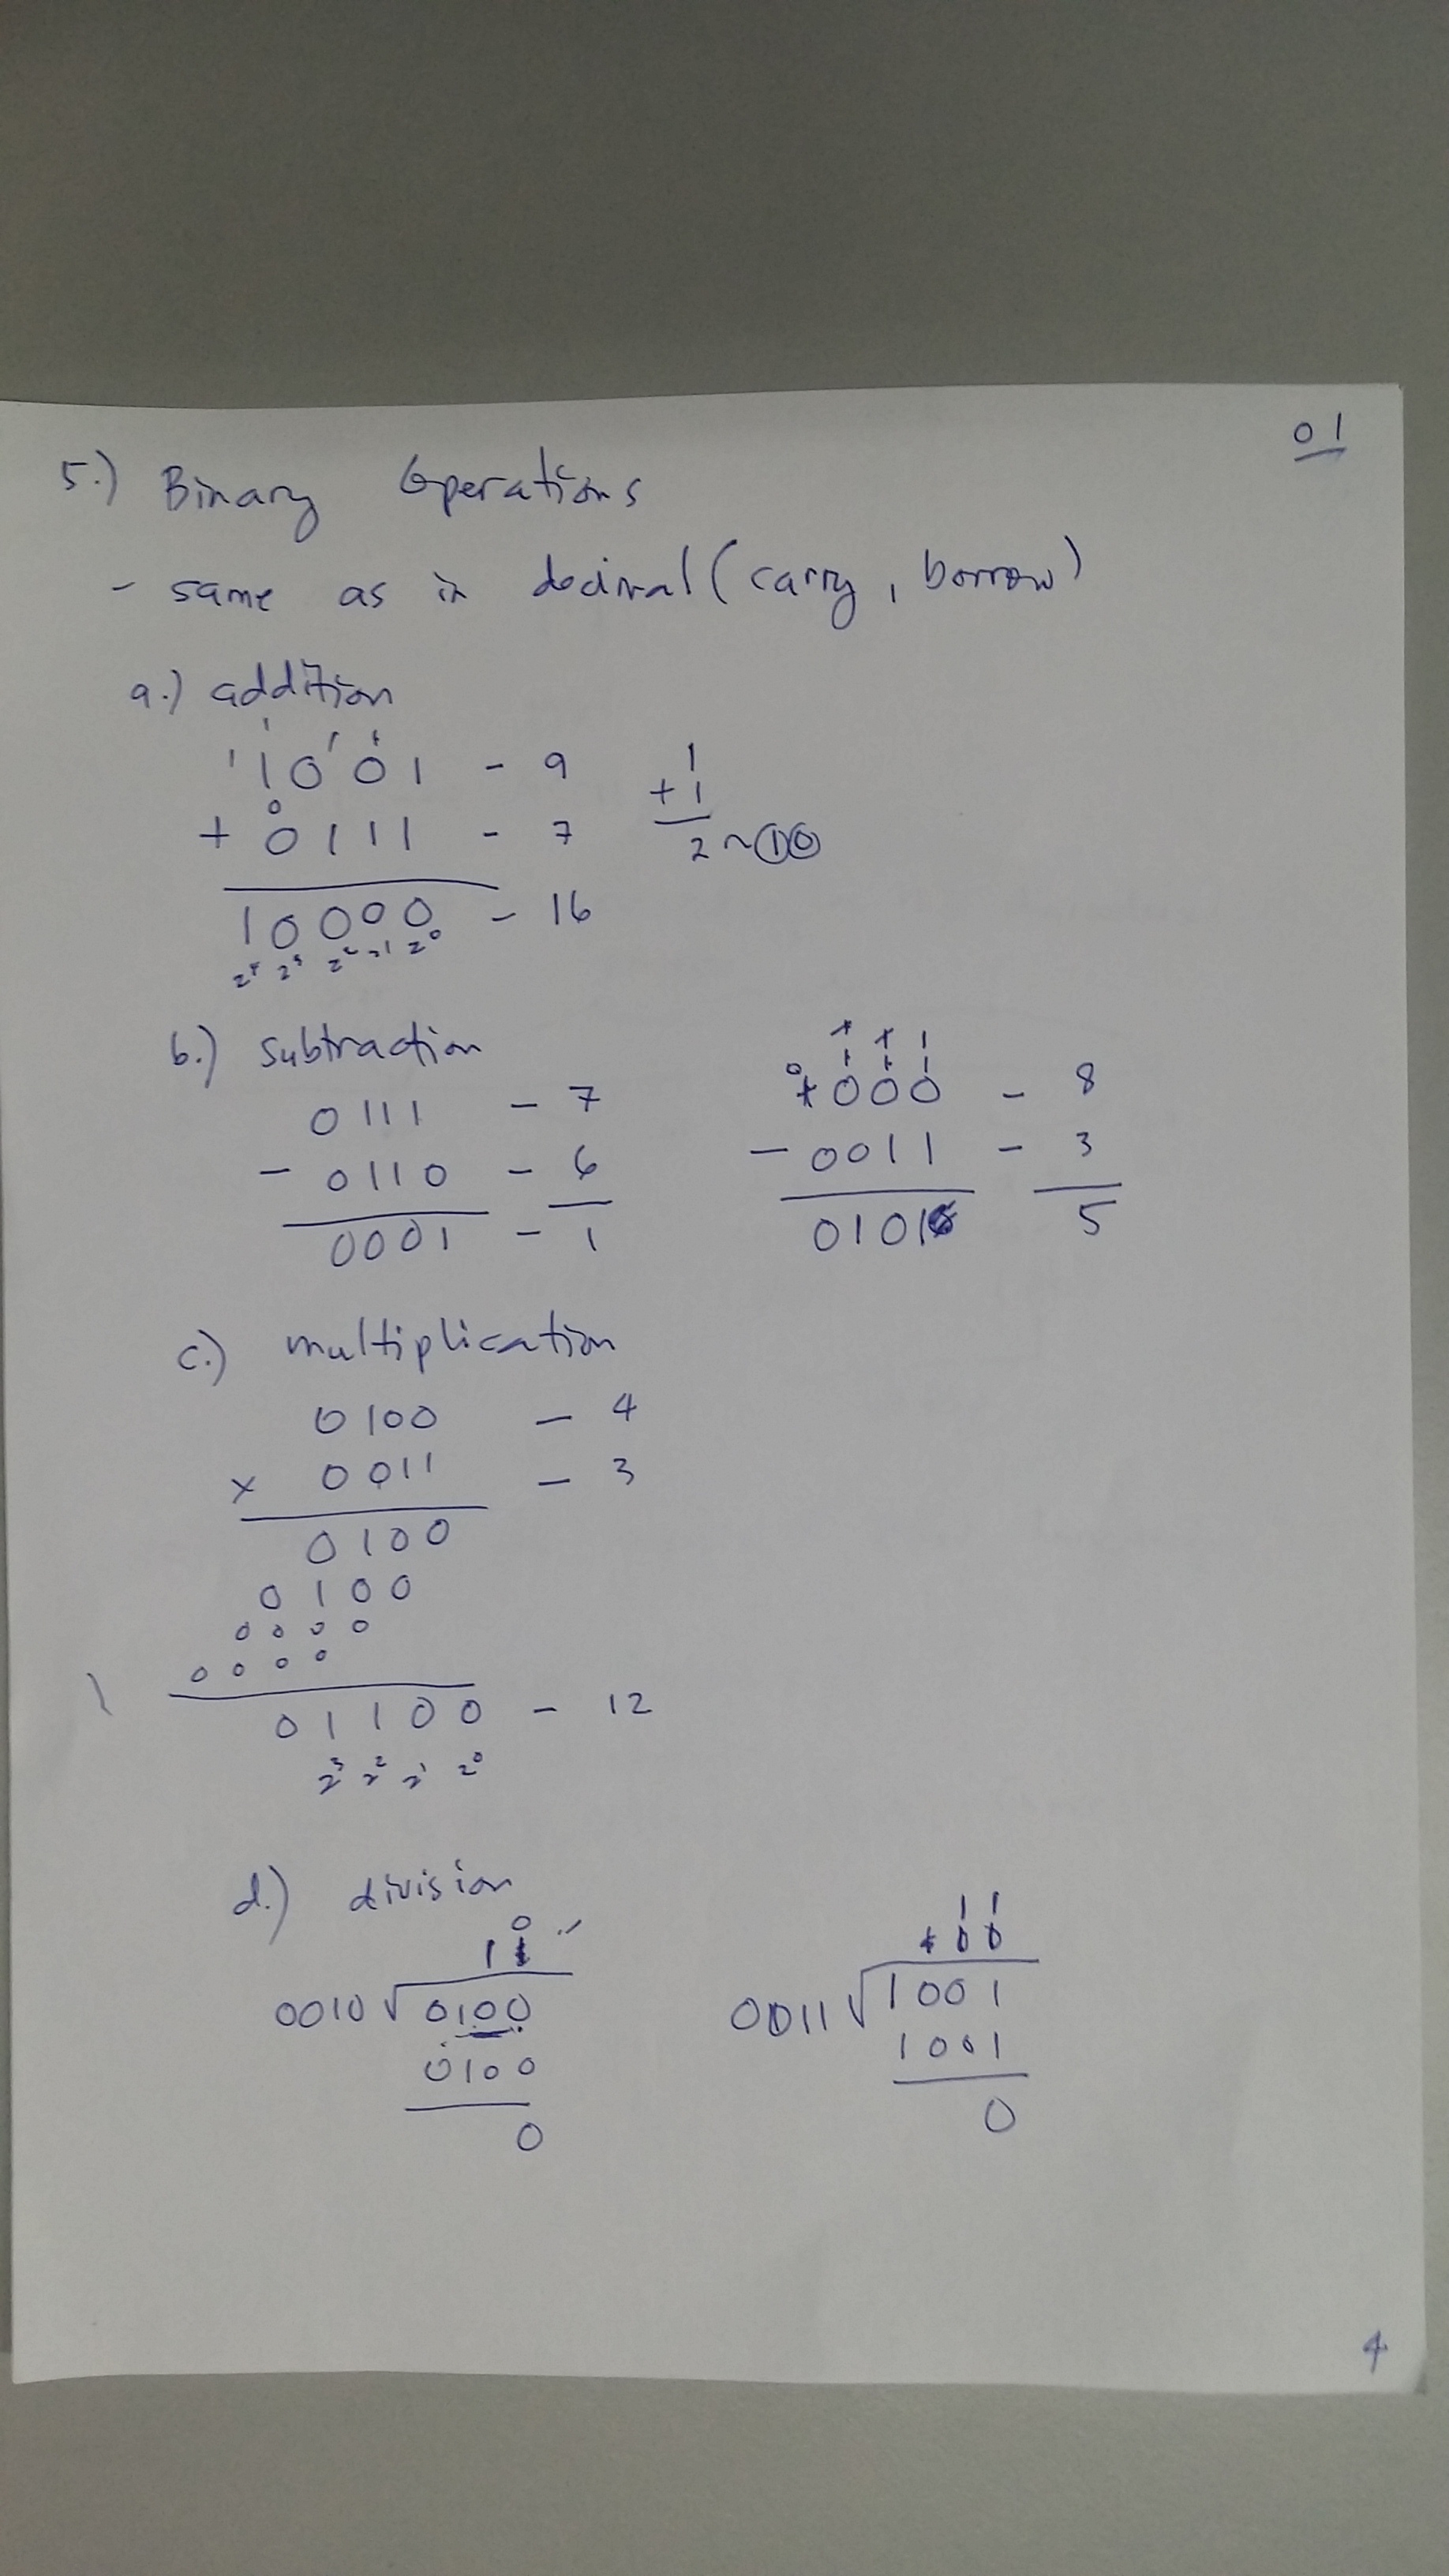 01
5.) Binary Operations
- same as in decimal (carry, borrow)
a.) addition
1 1 1
1001 - 9
+ 0111 - 7
10000 - 16
2⁴ 2³ 2² 2¹ 2⁰
1
+ 1
2 ~ 10
b.) subtraction
0111 - 7
- 0110 - 6
0001 - 1
1000 - 8
- 0011 - 3
0101 5
c.) multiplication
0100 - 4
x 0011 - 3
0100
0100
0000
0000
01100 - 12
2³ 2² 2¹ 2⁰
d.) division
10
0010 √ 0100
0100
0
11
0011 √ 1001
1001
0
4